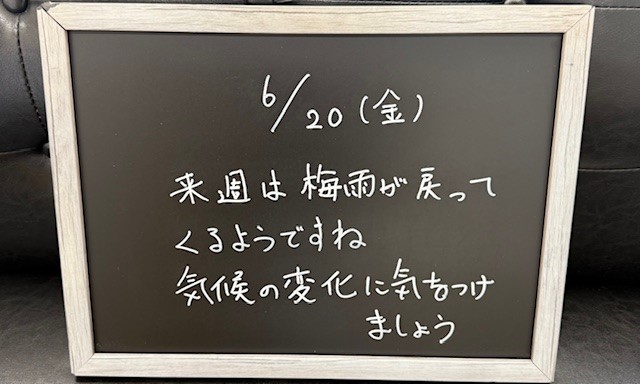 6/20(金)
来週は梅雨が戻って
くるようですね
気候の変化に気をつけ
ましょう